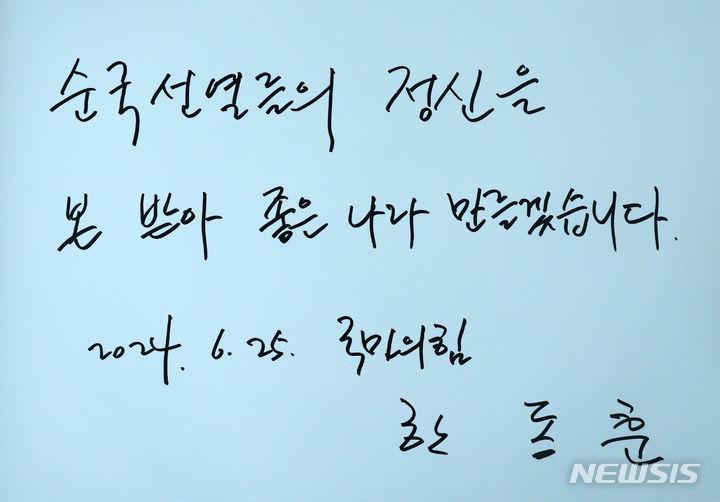 순국선열들의 정신을
본 받아 좋은 나라 만들겠습니다.
2024. 6. 25. 국민의힘
한 동 훈
NEWSIS